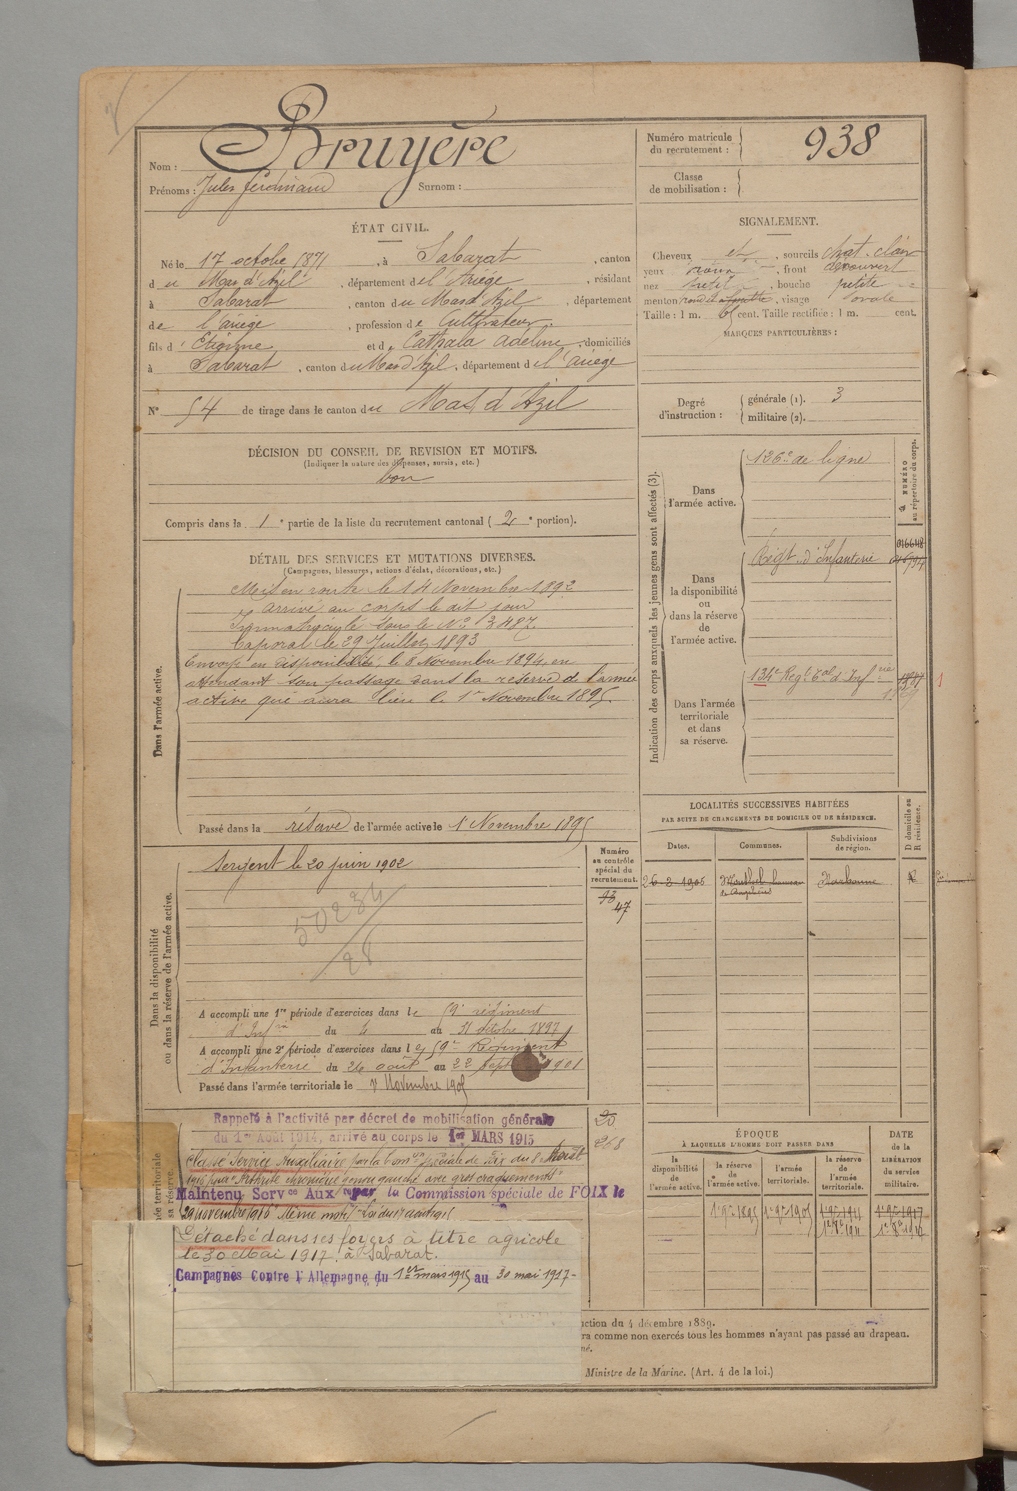 Nom : Bruyère
Prénoms : Jules Ferdinand Surnom :
Numéro matricule du recrutement : 938
Classe de mobilisation :
ÉTAT CIVIL.
Né le 17 octobre 1871, à Sabarat, canton
du Mas d'Azil, département de l'Ariège, résidant
à Sabarat, canton du Mas d'Azil, département
de l'ariège, profession de Cultivateur.
fils d'Etienne et de Cathala Adeline, domiciliés
à Sabarat, canton du Mas d'Azil, département de l'ariège
N° 54 de tirage dans le canton du Mas d'Azil
SIGNALEMENT.
Cheveux et, sourcils chat. clair
yeux, front découvert
nez petit, bouche petite
menton rond, visage ovale
Taille : 1 m. 65 cent. Taille rectifiée : 1 m. cent.
MARQUES PARTICULIÈRES :
Degré d'instruction : générale (1). 3
militaire (2).
DÉCISION DU CONSEIL DE REVISION ET MOTIFS.
(Indiquer la nature des dispenses, sursis, etc.)
bon
Compris dans la 1e partie de la liste du recrutement cantonal (2e portion).
DÉTAIL DES SERVICES ET MUTATIONS DIVERSES.
(Campagnes, blessures, actions d'éclat, décorations, etc.)
Dans l'armée active.
Mis en route le 14 Novembre 1892
arrivé au corps le dit jour
Immatriculé sous le N° 3487.
Caporal le 29 Juillet 1893
Envoyé en disponibilité le 8 Novembre 1894, en
attendant son passage dans la réserve de l'armée
active qui aura lieu le 1er Novembre 1895
Passé dans la réserve de l'armée active le 1er Novembre 1895
Indication des corps auxquels les jeunes gens sont affectés (3).
NUMÉRO au répertoire du corps.
Dans l'armée active.
126e de ligne
Dans la disponibilité ou dans la réserve de l'armée active.
Régt d'Infanterie
Dans l'armée territoriale et dans sa réserve.
134e Regt Tal d'Infrie
Dans la disponibilité ou dans la réserve de l'armée active.
Numéro au contrôle spécial du recrutement.
Sergent le 20 juin 1902
47
50284
28
A accompli une 1re période d'exercices dans le 59e régiment
d'Infrie du 4 au 31 octobre 1897
A accompli une 2e période d'exercices dans le 59e Régiment
d'Infanterie du 26 août au 22 sept 1901
Passé dans l'armée territoriale le 1 Novembre 1905
LOCALITÉS SUCCESSIVES HABITÉES
PAR SUITE DE CHANGEMENTS DE DOMICILE OU DE RÉSIDENCE.
Dates. Communes. Subdivisions de région. D domicile ou R résidence.
26-2-1906 Narbonne R
Rappelé à l'activité par décret de mobilisation générale
du 1er Août 1914, arrivé au corps le 1er MARS 1915
20
268
Classé Service Auxiliaire par la Comon spéciale de Foix du 8 Août
1916 pour Arthrite chronique genou gauche avec gros craquements
Maintenu Servce Auxre par la Commission spéciale de FOIX le
29 novembre 1916 Même motif
Détaché dans ses foyers à titre agricole
le 30 Mai 1917, à Sabarat.
Campagnes Contre l'Allemagne du 1er mars 1915 au 30 mai 1917-
ÉPOQUE
À LAQUELLE L'HOMME DOIT PASSER DANS
DATE de la LIBÉRATION du service militaire.
la disponibilité de l'armée active. la réserve de l'armée active. l'armée territoriale. la réserve de l'armée territoriale.
1er 9bre 1895 1er 9bre 1905 1er 9bre 1911 1er 9bre 1917
ction du 4 décembre 1889.
ra comme non exercés tous les hommes n'ayant pas passé au drapeau.
né.
Ministre de la Marine. (Art. 4 de la loi.)